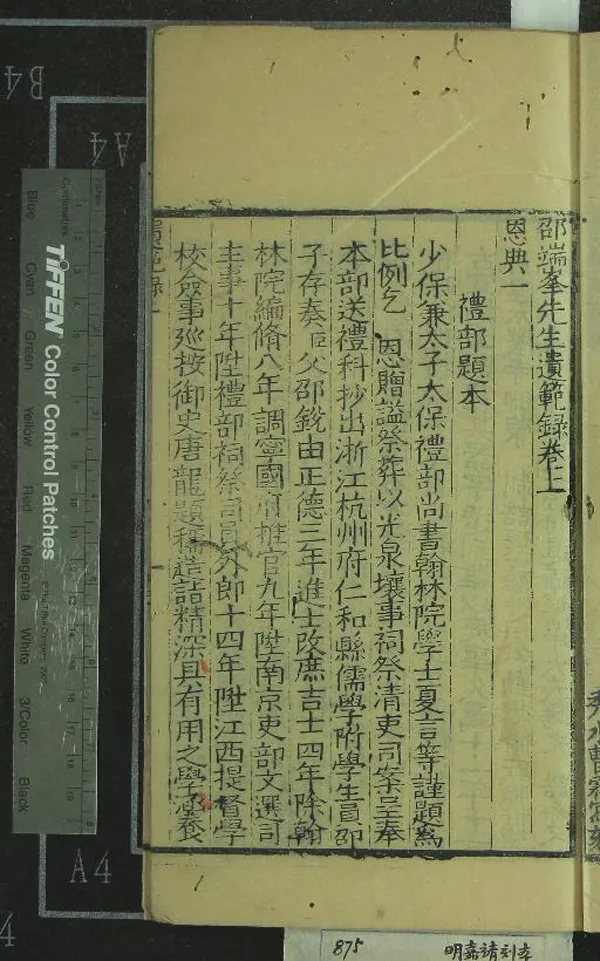 邵端峯先生遺範録卷上
恩典一
禮部題本
少保兼太子太保禮部尚書翰林院學士夏言等謹題爲
比例乞 恩贈謚祭葬以光泉壤事祠祭清吏司案呈奉
本部送禮科抄出浙江杭州府仁和縣儒學附學生員邵
子存奏臣父邵銳由正德三年進士改庶吉士四年除翰
林院編脩八年調寧國府推官九年陞南京吏部文選司
主事十年陞禮部祠祭司員外郎十四年陞江西提督學
校僉事廵按御史唐龍題稱造詣精深具有用之學涵養
B4
A4
Inches
Centimetres
TIFFEN Color Control Patches
Blue Cyan Green Yellow Red Magenta White 3/Color Black
A4
4
875
明嘉靖刻本